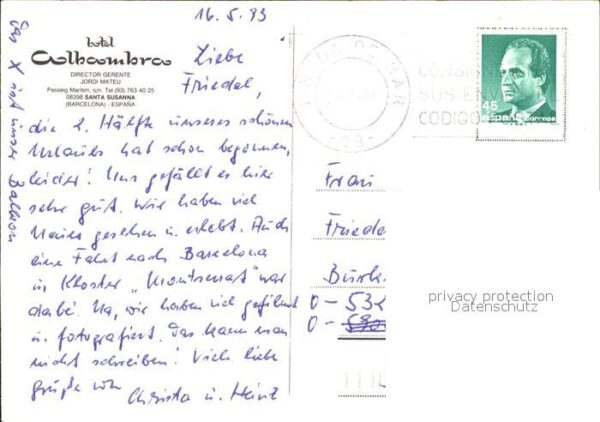 16.5.93
hotel
Alhambra
DIRECTOR GERENTE
JORDI MATEU
Passeig Marítim, s/n. Tel (93) 763 40 25
08398 SANTA SUSANNA
(BARCELONA) - ESPAÑA
Das X ist unser Balkon
Liebe
Friedel,
die 2. Hälfte unseres schönen
Urlaubs hat schon begonnen,
leider! Uns gefällt es hier
sehr gut. Wir haben viel
Neues gesehen u. erlebt. Auch
eine Fahrt nach Barcelona
u. Kloster "Montserrat" war
dabei. Na, wir haben viel gefilmt
u. fotografiert. Das kann man
nicht schreiben! Viele liebe
Grüße von
Christa u. Heinz
DE MAR
CONSIGNE
SUS ENV
CODIGO
45
españa correos
Frau
Friede
Burk
D - 532
D -
privacy protection
Datenschutz